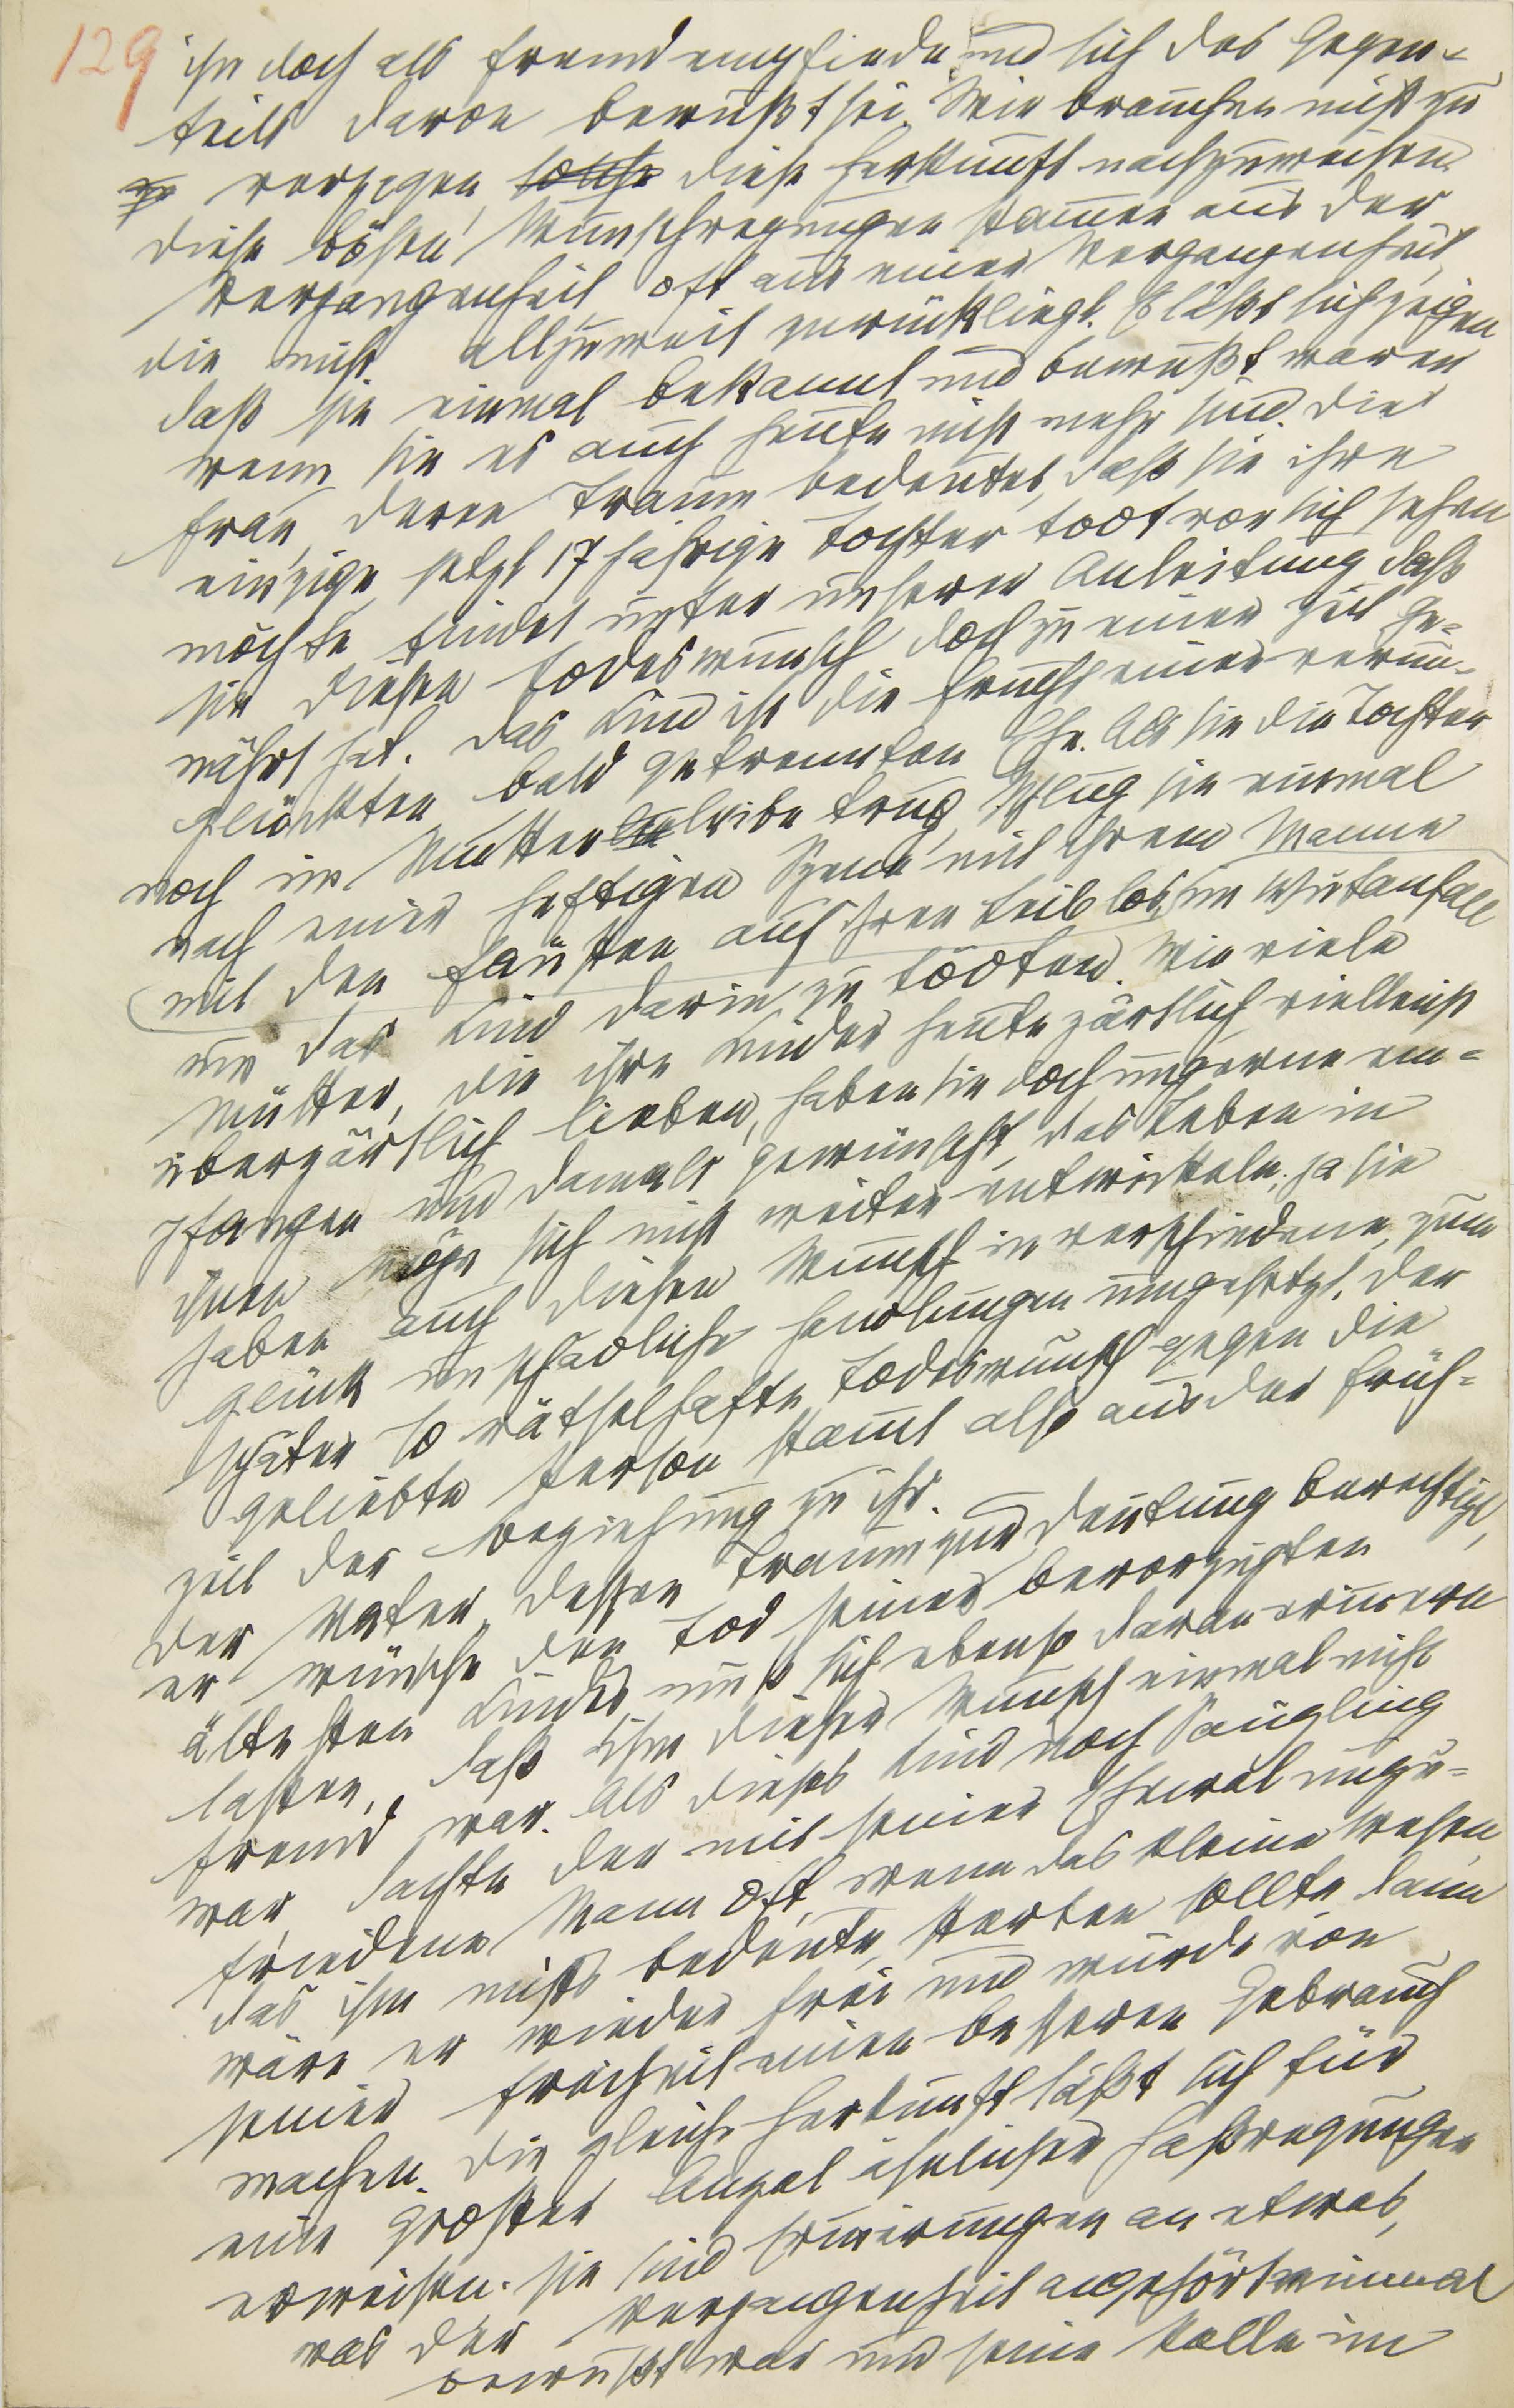 129
ihr doch als fremd empfinde und sich des Gegen-
teils davon bewußt sei. Wir brauchen nicht zu
verzagen, diese Herkunft nachzuweisen.
Diese bösen Wunschregungen stammen aus der
Vergangenheit, oft aus einer Vergangenheit,
die nicht allzuweit zurückliegt. Es läßt sich zeigen
daß sie einmal bekannt und bewußt waren
wenn sie es auch heute nicht mehr sind. Die
Frau, deren Traum bedeutet, daß sie ihre
einzige, jetzt 17jährige Tochter todt vor sich sehen
möchte, findet unter unserer Anleitung, daß
sie diesen Todeswunsch doch zu einer Zeit ge-
nährt hat. Das Kind ist die Frucht einer verun-
glückten bald getrennten Ehe. Als sie die Tochter
noch im Mutterleibe trug, schlug sie einmal
nach einer heftigen Szene mit ihrem Manne im Wutanfall
mit den Fäusten auf ihren Leib los,
um das Kind darin zu tödten. Wie viele
Mütter, die ihre Kinder heute zärtlich vielleicht
überzärtlich lieben, haben sie doch ungerne em-
pfangen und damals gewünscht, das Leben in
ihnen möge sich nicht weiter entwickeln; ja sie
haben auch diesen Wunsch in verschiedene, zum
Glück unschädliche Handlungen umgesetzt. Der
später so rätselhafte Todeswunsch gegen die
geliebte Person stammt also aus der Früh-
zeit der Beziehung zu ihr.
Der Vater, dessen Traum zur Deutung berechtigt,
er wünsche den Tod seines bevorzugten
ältesten Kindes, muß sich ebenso daran erinnern
lassen, daß ihm dieser Wunsch einmal nicht
fremd war. Als dieses Kind noch Säugling
war, dachte der mit seiner Ehewal unzu-
friedene Mann oft, wenn das kleine Wesen,
das ihm nichts bedeute, sterben sollte, dann
wäre er wieder frei und würde von
seiner Freiheit einen besseren Gebrauch
machen. Die gleiche Herkunft läßt sich für
eine große Anzal ähnlicher Haßregungen
erweisen. Sie sind Erinnerungen an etwas,
was der Vergangenheit angehört, einmal
bewußt war und seine Rolle im